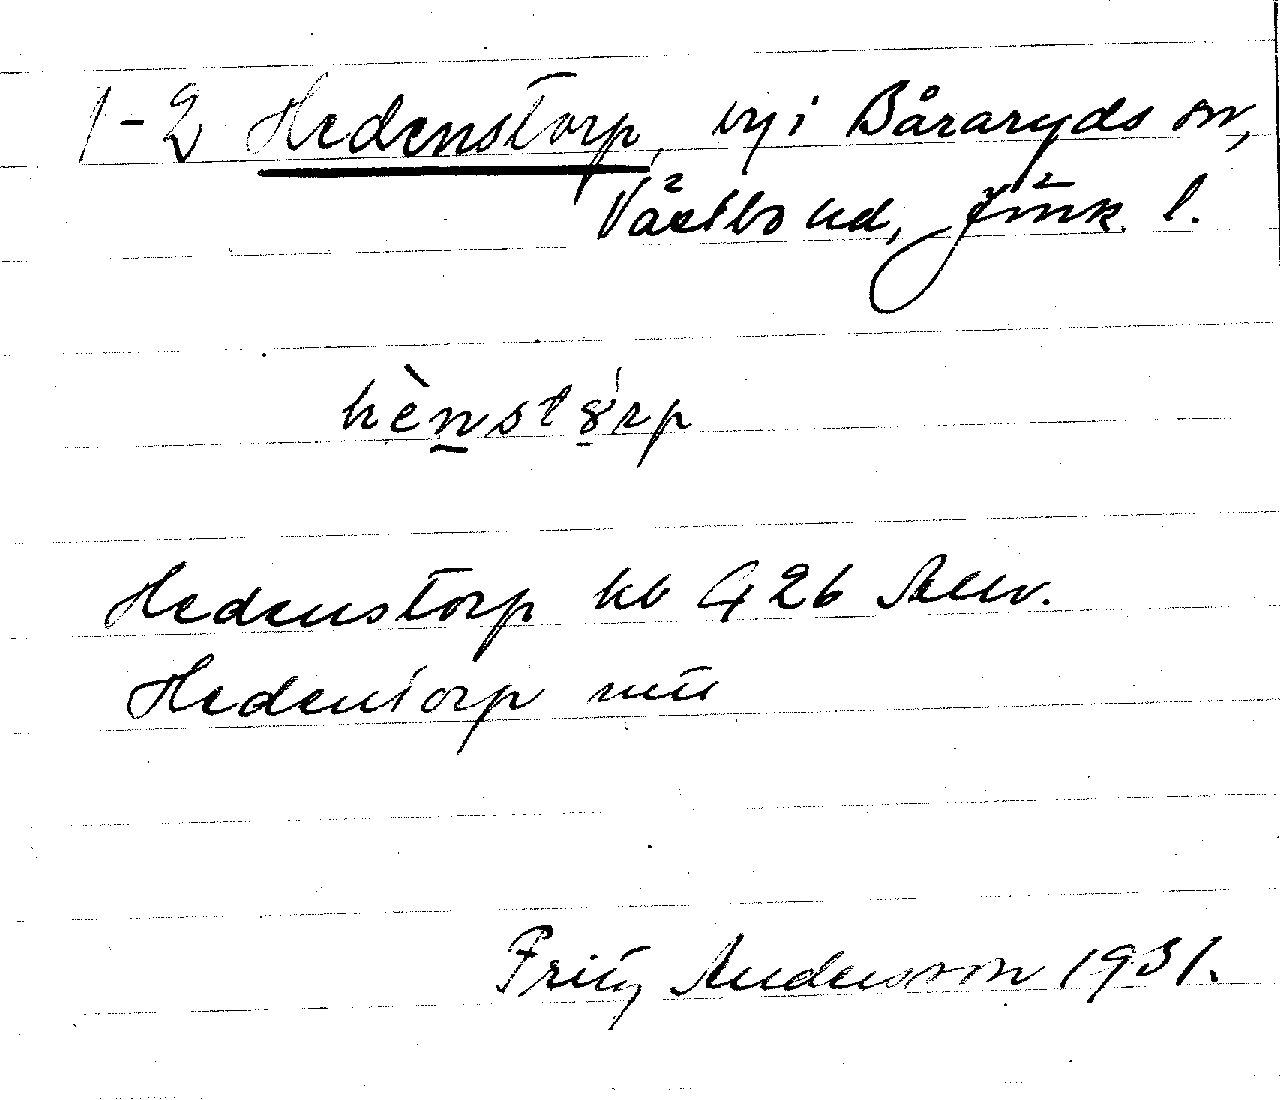 1-2 Hedenstorp, by i Båraryds sn,
Västbo hd, Jönk. l.
hènstȣ́rp
Hedenstorp kb G 26 Allm.
Hedentorp
Fritz Andersson 1931.